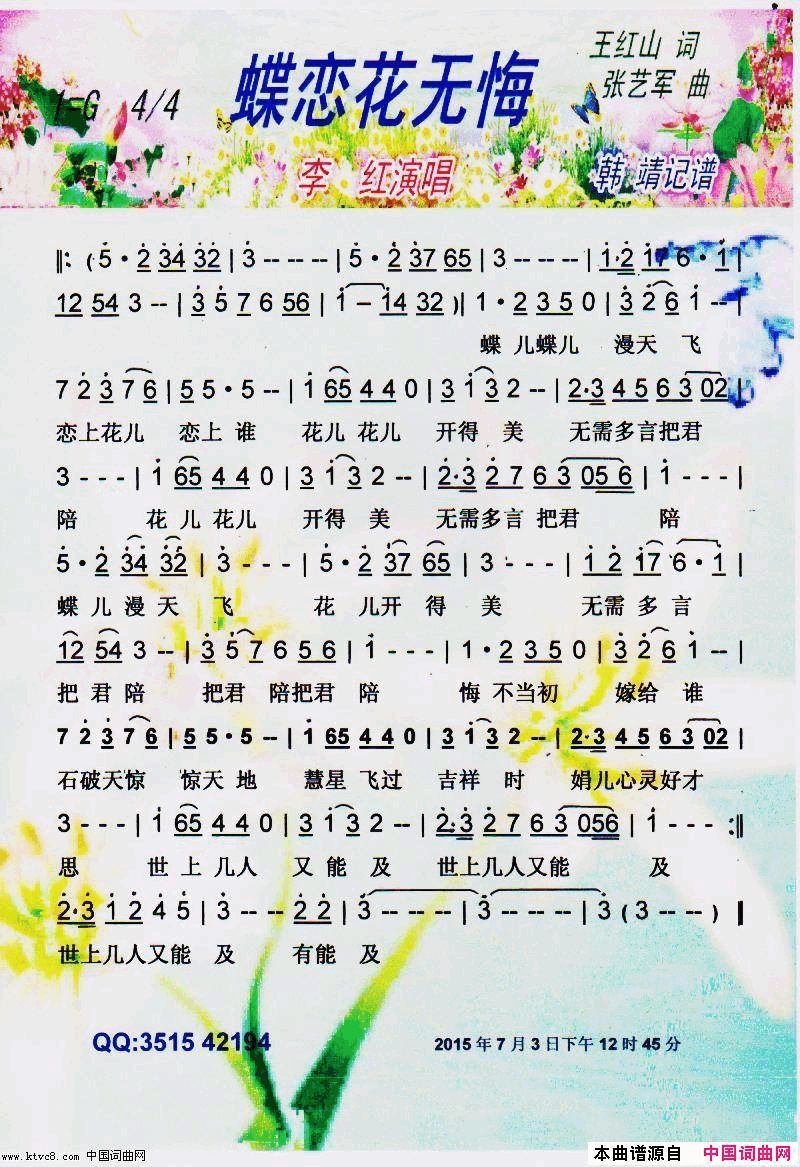 1=G 4/4
蝶恋花无悔
王红山 词
张艺军 曲
李 红演唱
韩 靖记谱
‖: ( 5 · 2 34 32 | 3 -- -- | 5 · 2 37 65 | 3 -- -- | 1·2 17 6 · 1 |
12 54 3 -- | 3 5 7 6 56 | 1 – 14 32 ) | 1 · 2 3 5 0 | 3 2 6 1 -- |
蝶 儿蝶儿 漫天 飞
7 2 3 7 6 | 5 5 · 5 -- | 1 65 4 4 0 | 3 1 3 2 -- | 2·3 4 5 6 3 02 |
恋上花儿 恋上 谁 花儿 花儿 开得 美 无需多言把君
3 - - - | 1 65 4 4 0 | 3 1 3 2 -- | 2·3 2 7 6 3 05 6 | 1 - - - |
陪 花 儿 花儿 开得 美 无需多言 把君 陪
5 · 2 34 32 | 3 - - - | 5 · 2 37 65 | 3 - - - | 1 2 17 6 · 1 |
蝶 儿 漫 天 飞 花 儿开 得 美 无需 多 言
12 54 3 -- | 3 5 7 6 5 6 | 1 - - - | 1 · 2 3 5 0 | 3 2 6 1 -- |
把 君 陪 把君 陪把君 陪 悔 不当初 嫁给 谁
7 2 3 7 6 | 5 5 · 5 -- | 1 65 4 4 0 | 3 1 3 2 -- | 2·3 4 5 6 3 02 |
石破天惊 惊天 地 慧星 飞过 吉祥 时 娟儿心灵好才
3 - - - | 1 65 4 4 0 | 3 1 3 2 -- | 2·3 2 7 6 3 056 | 1 - - - :‖
思 世 上 几人 又 能 及 世上几人又能 及
2·3 1 2 4 5 | 3 -- -- 2 2 | 3 -- -- | 3 -- -- | 3 ( 3 -- - ) ‖
世上几人又能 及 有能 及
QQ:3515 42194
2015 年 7 月 3 日下午 12 时 45 分
www.ktvc8.com 中国词曲网
本曲谱源自 中国词曲网